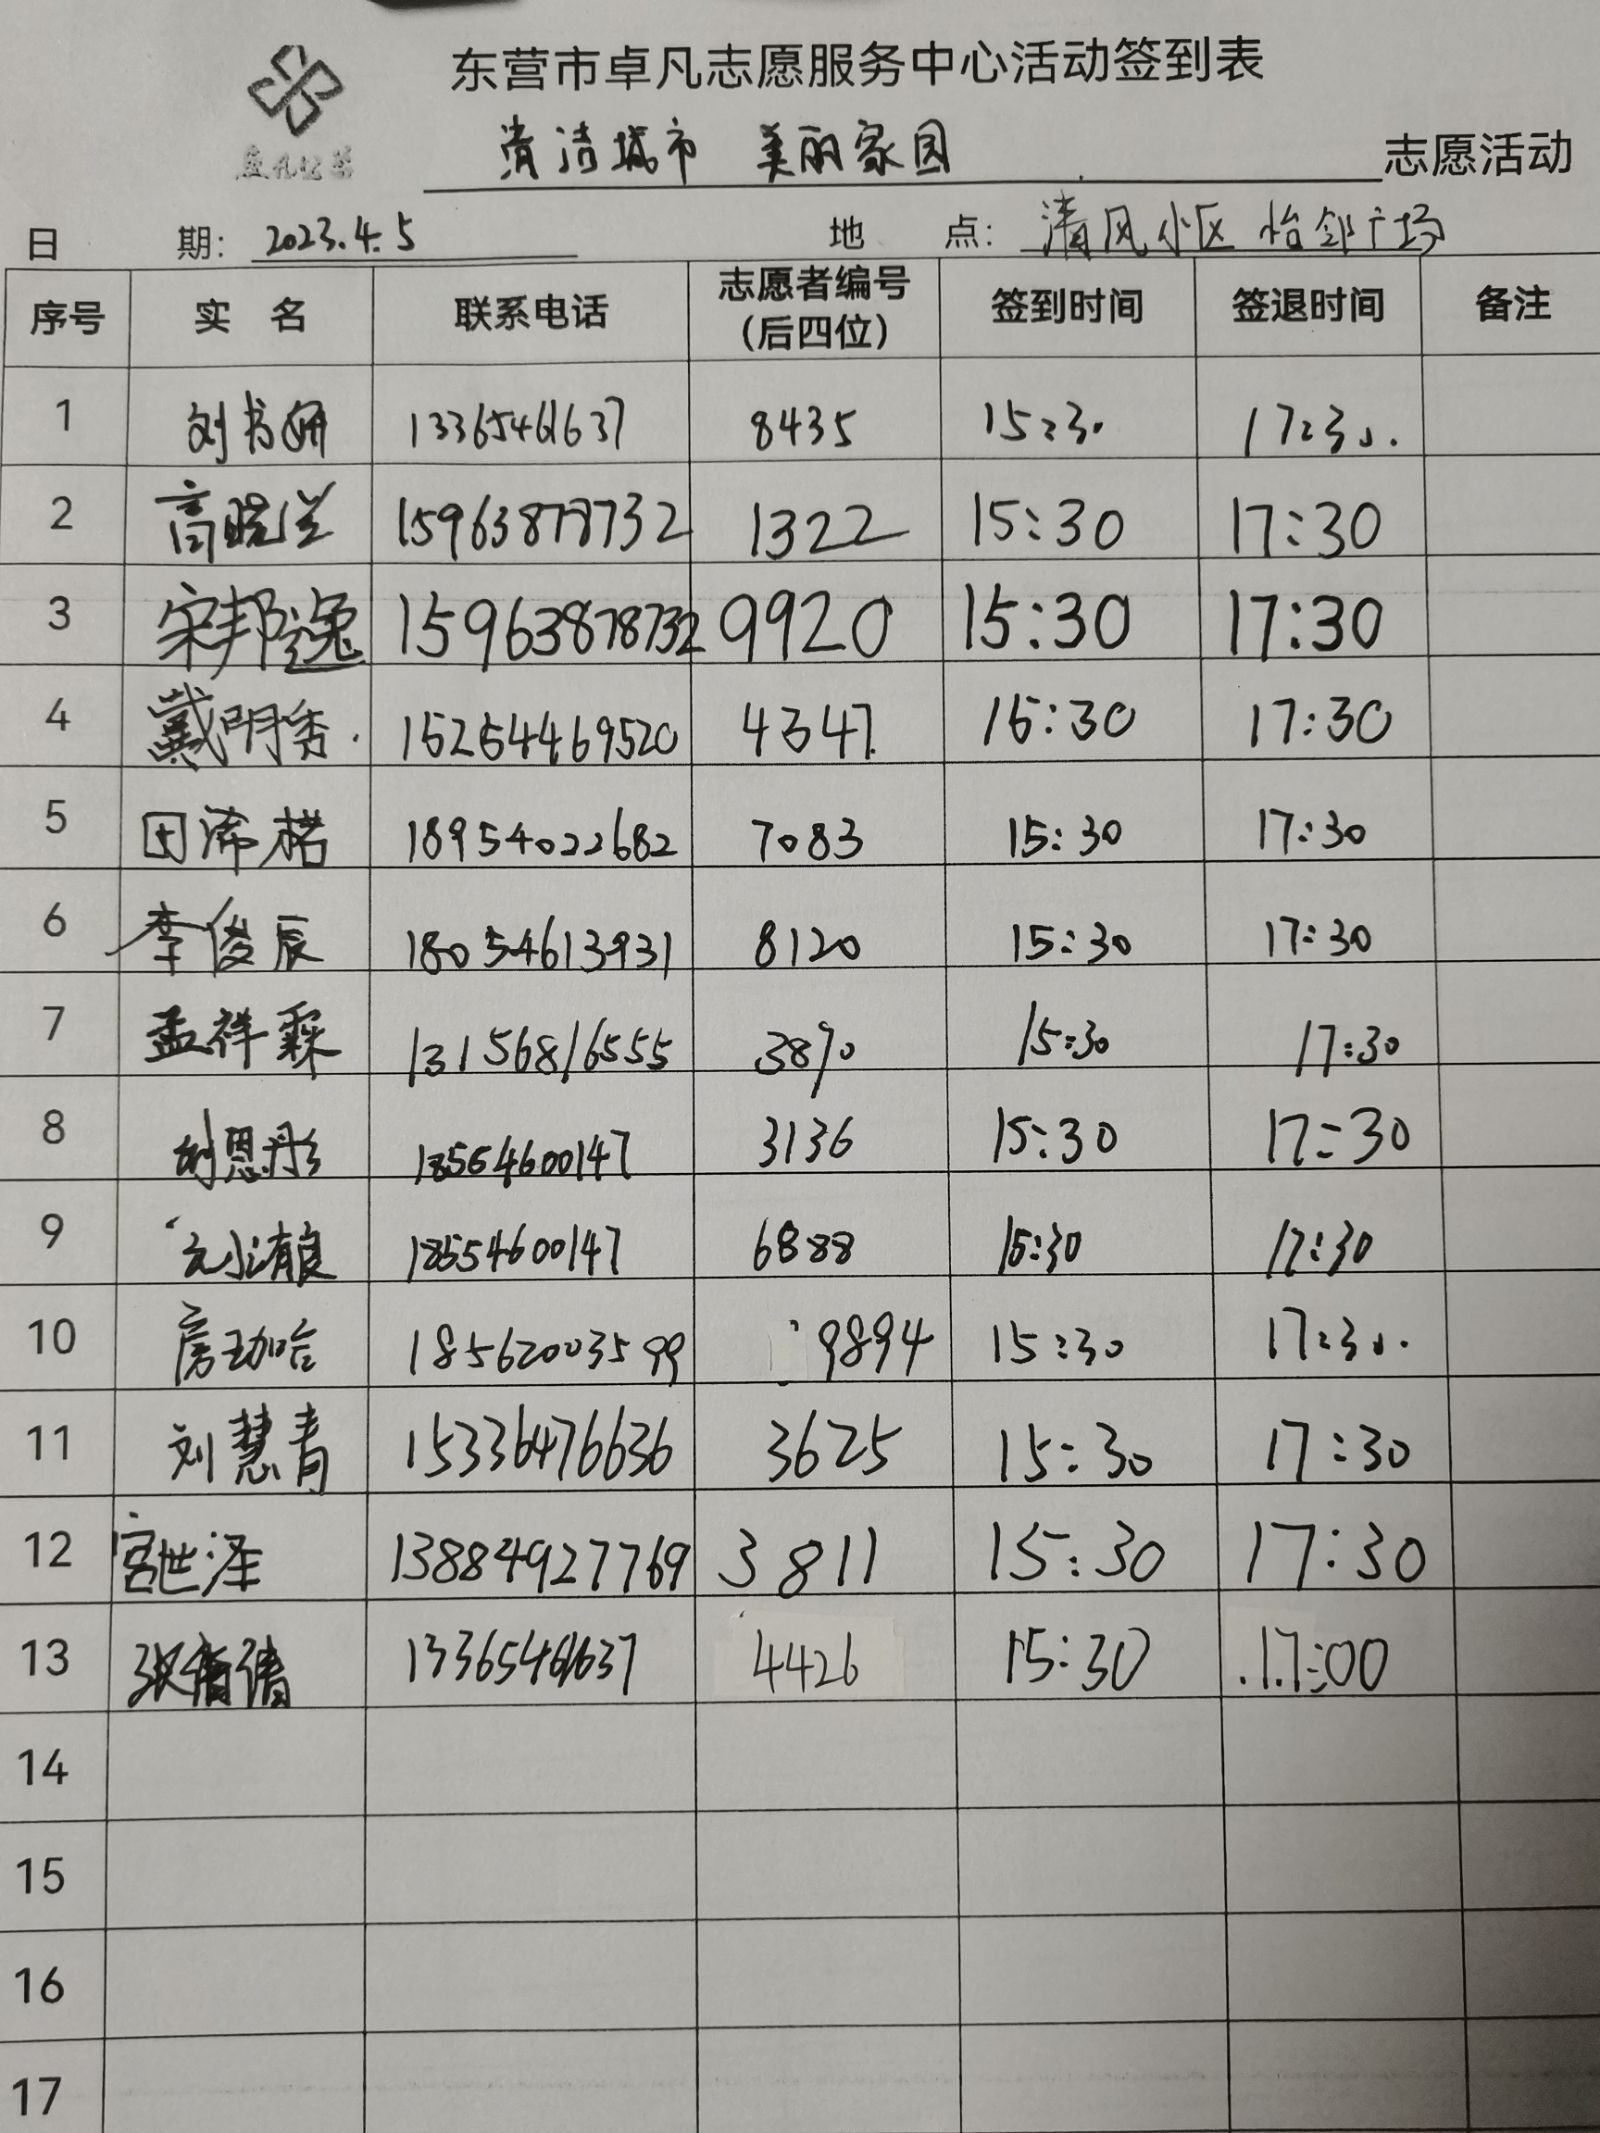 东营市卓凡志愿服务中心活动签到表
清洁城市 美丽家园 志愿活动
日 期: 2023.4.5 地 点: 清风小区 怡邻广场
序号 实 名 联系电话 志愿者编号(后四位) 签到时间 签退时间 备注
1 刘书妍 13365461637 8435 15:30 17:30
2 高晓兰 15963878732 1322 15:30 17:30
3 宋邦逸 15963878732 9920 15:30 17:30
4 戴明秀 15254469520 4347 15:30 17:30
5 田浠楉 18954022682 7083 15:30 17:30
6 李俊辰 18054613931 8120 15:30 17:30
7 孟祥霖 13156816555 3870 15:30 17:30
8 思彤 18554600147 3136 15:30 17:30
9 18554600147 6888 15:30 17:30
10 房珈含 18562003599 9894 15:30 17:30
11 刘慧青 15336476636 3625 15:30 17:30
12 宫世泽 13884927769 3811 15:30 17:30
13 张倩 13365461637 4426 15:30 17:00
14
15
16
17